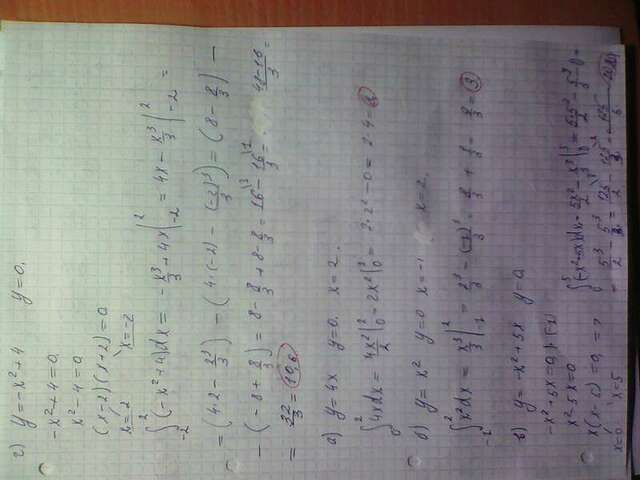 г) y = -x² + 4   y = 0.
-x² + 4 = 0.
x² - 4 = 0
(x-2)(x+2) = 0
x = 2   x = -2
∫₋₂² (-x²+4)dx = -x³/3 + 4x |₋₂² = 4x - x³/3 |₋₂² =
= (4·2 - 2³/3) - (4·(-2) - (-2)³/3) = (8 - 8/3) -
- (-8 + 8/3) = 8 - 8/3 + 8 - 8/3 = 16 - 16/3 = (48-16)/3 =
= 32/3 = 10,6
а) y = 4x   y = 0.   x = 2.
∫₀² 4xdx = 4x²/2 |₀² = 2x² |₀² = 2·2² - 0 = 2·4 = 8
б) y = x²   y = 0   x = -1   x = 2.
∫₋₁² x²dx = x³/3 |₋₁² = 2³/3 - (-1)³/3 = 8/3 + = 3
в) y = -x² + 5x   y = 0
-x² + 5x = 0 | (-1)
x² - 5x = 0
x(x-5) = 0
x = 0   x = 5
∫₀⁵ (-x²+5x)dx = 5x²/2 - x³/3 |₀⁵ =